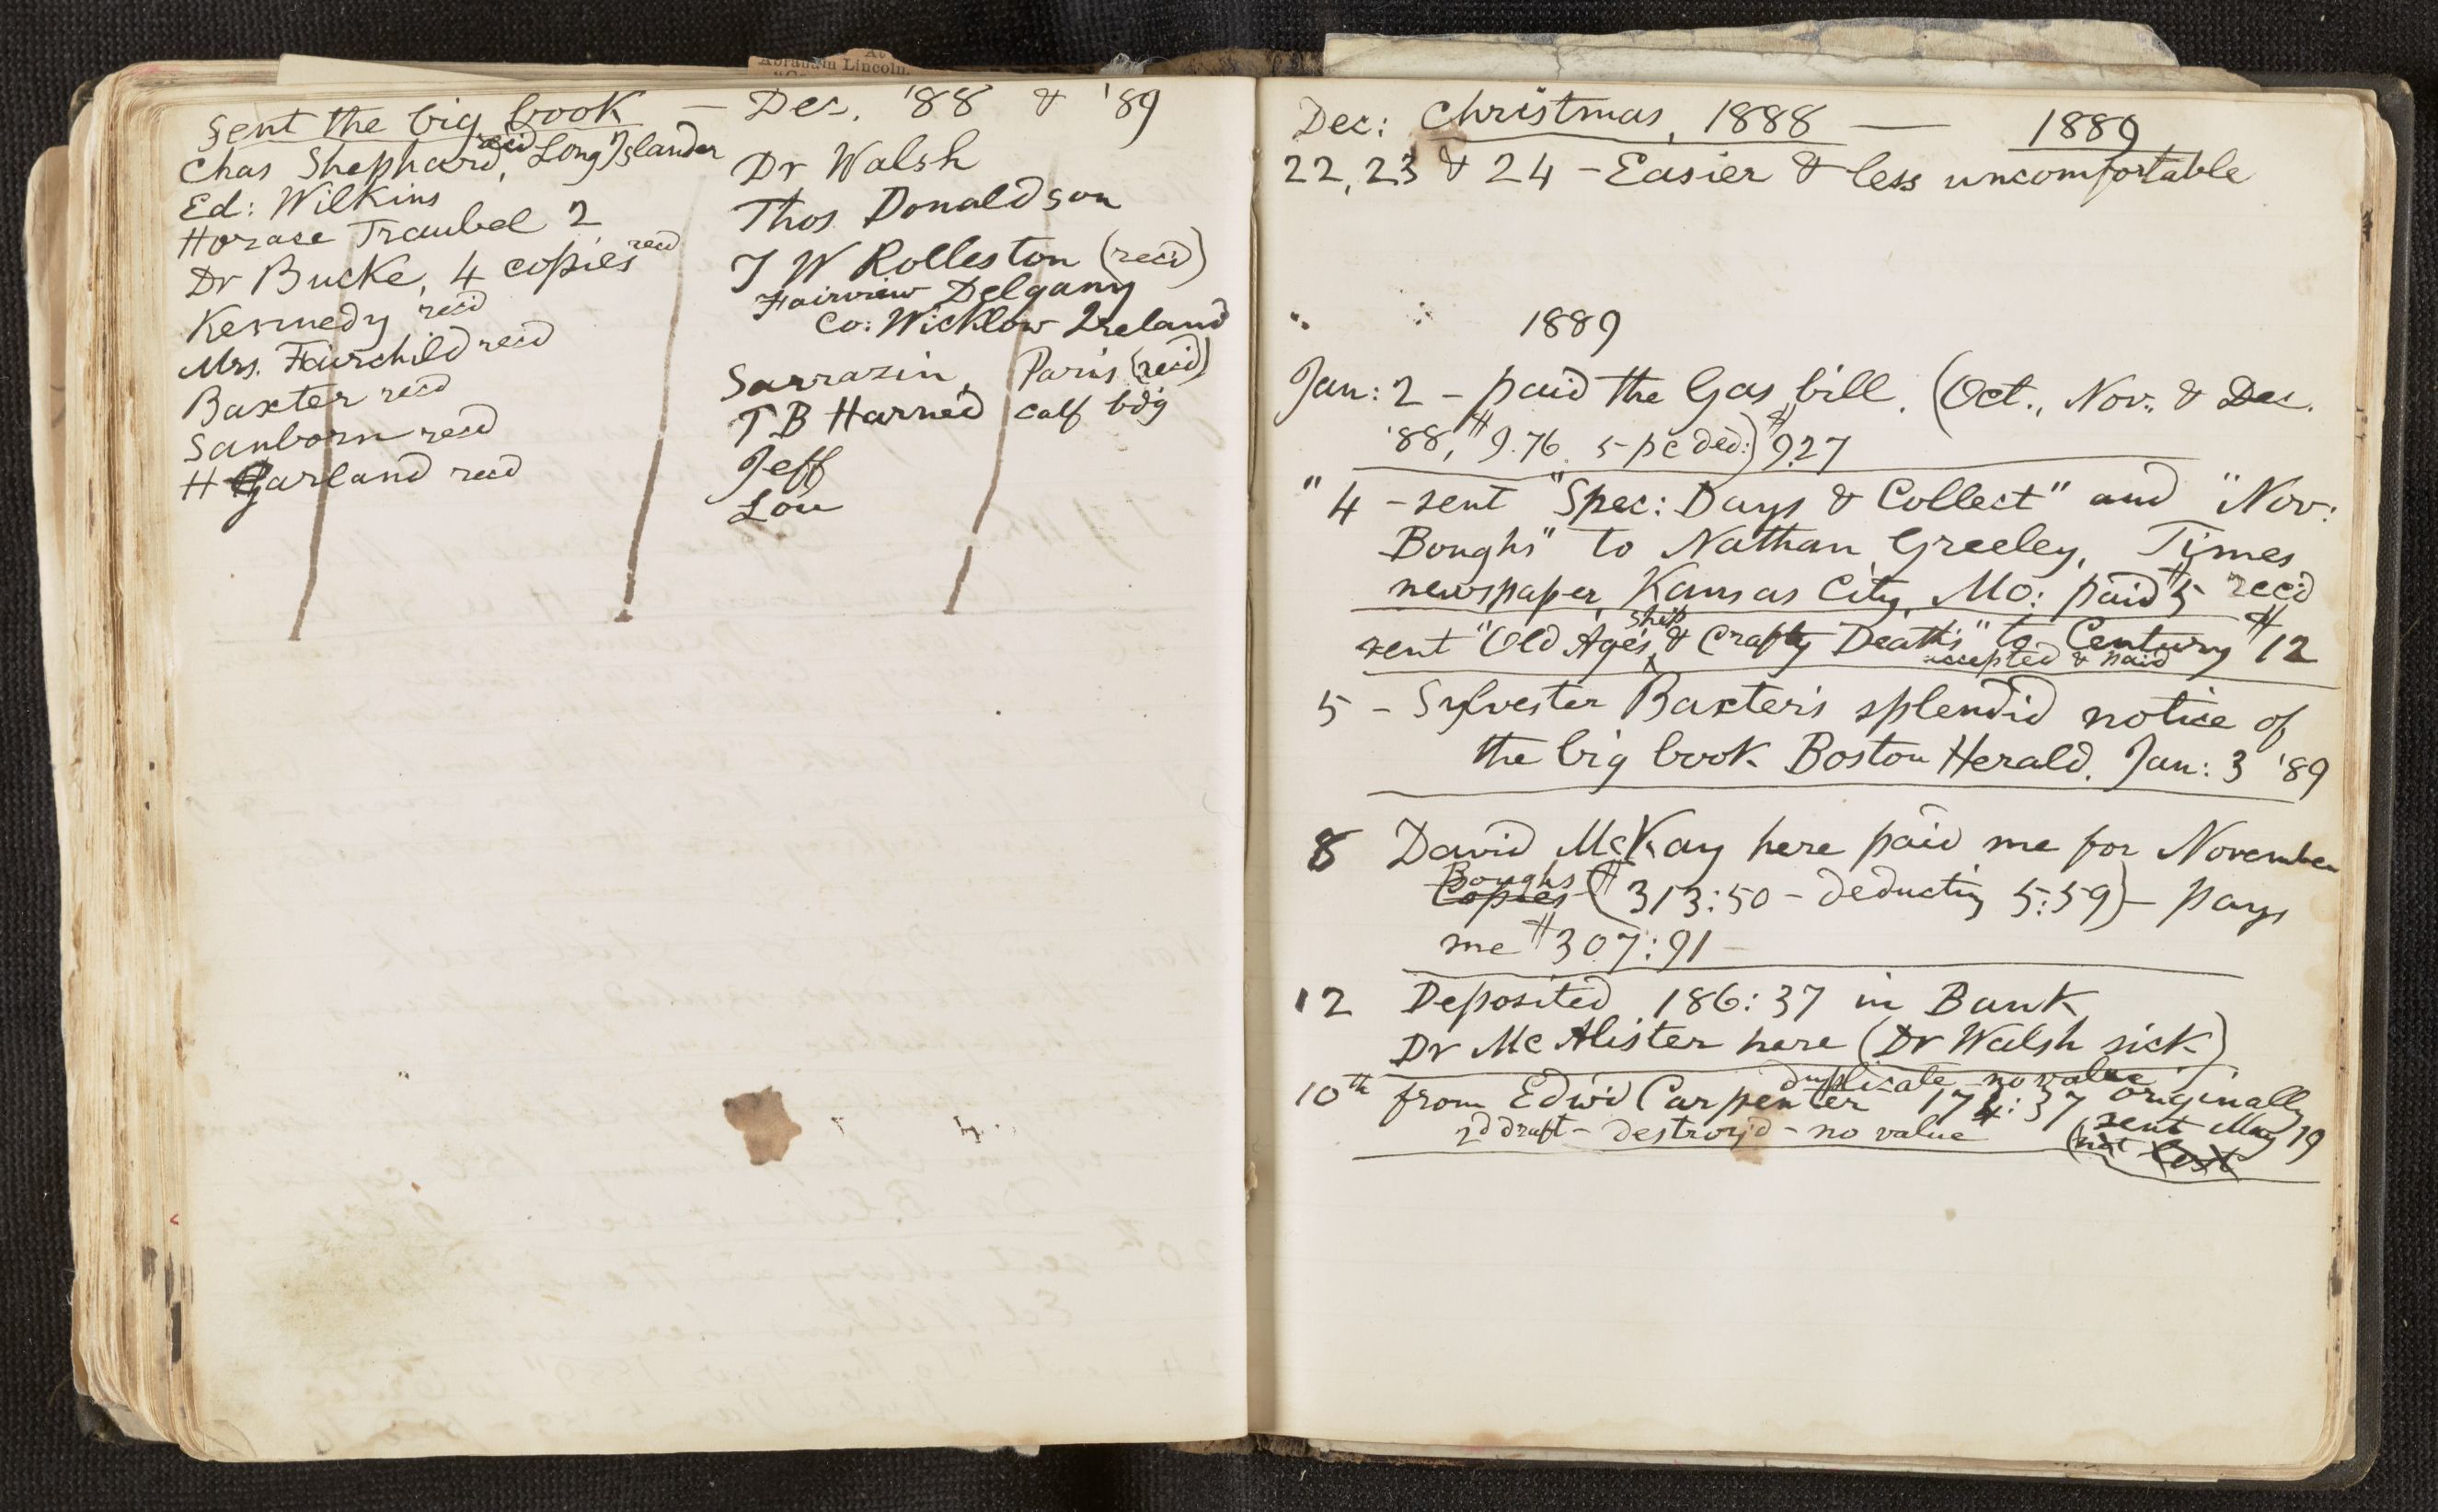 At
Abraham Lincoln.
Sent the big book — Dec. '88 & '89
Chas Shephard, rec'd Long Islander
Ed: Wilkins
Horace Traubel 2
Dr Bucke, 4 copies rec'd
Kennedy rec'd
Mrs. Fairchild rec'd
Baxter rec'd
Sanborn rec'd
H Garland rec'd
Dr Walsh
Thos Donaldson
T W Rolleston (rec'd)
Fairview Delgany
Co: Wicklow Ireland
Sarrazin, Paris (rec'd)
T B Harned calf b'd'g
Jeff
Lou
Dec: Christmas, 1888 — 1889
22, 23 & 24 – Easier & less uncomfortable
1889
Jan: 2 – paid the Gas bill. (Oct., Nov. & Dec.
'88, $9.76 5 pc ded:) $9.27
" 4 – sent "Spec: Days & Collect" and "Nov:
Boughs" to Nathan Greeley, Times
newspaper, Kansas City, Mo: paid $5 rec'd
sent "Old Age's ship & Crafty Death's" to Century $12
accepted & paid
5 – Sylvester Baxter's splendid notice of
the big book Boston Herald. Jan: 3 '89
8 David McKay here paid me for November
Boughs
Copies ($313:50 – deducting 5:59) – pays
me $307:91 –
12 Deposited 186:37 in Bank
Dr McAlister here (Dr Walsh sick)
duplicate no value
10th from Edw'd Carpenter 174:37 originally
sent May 19
2d draft – destroy'd – no value
(not lost